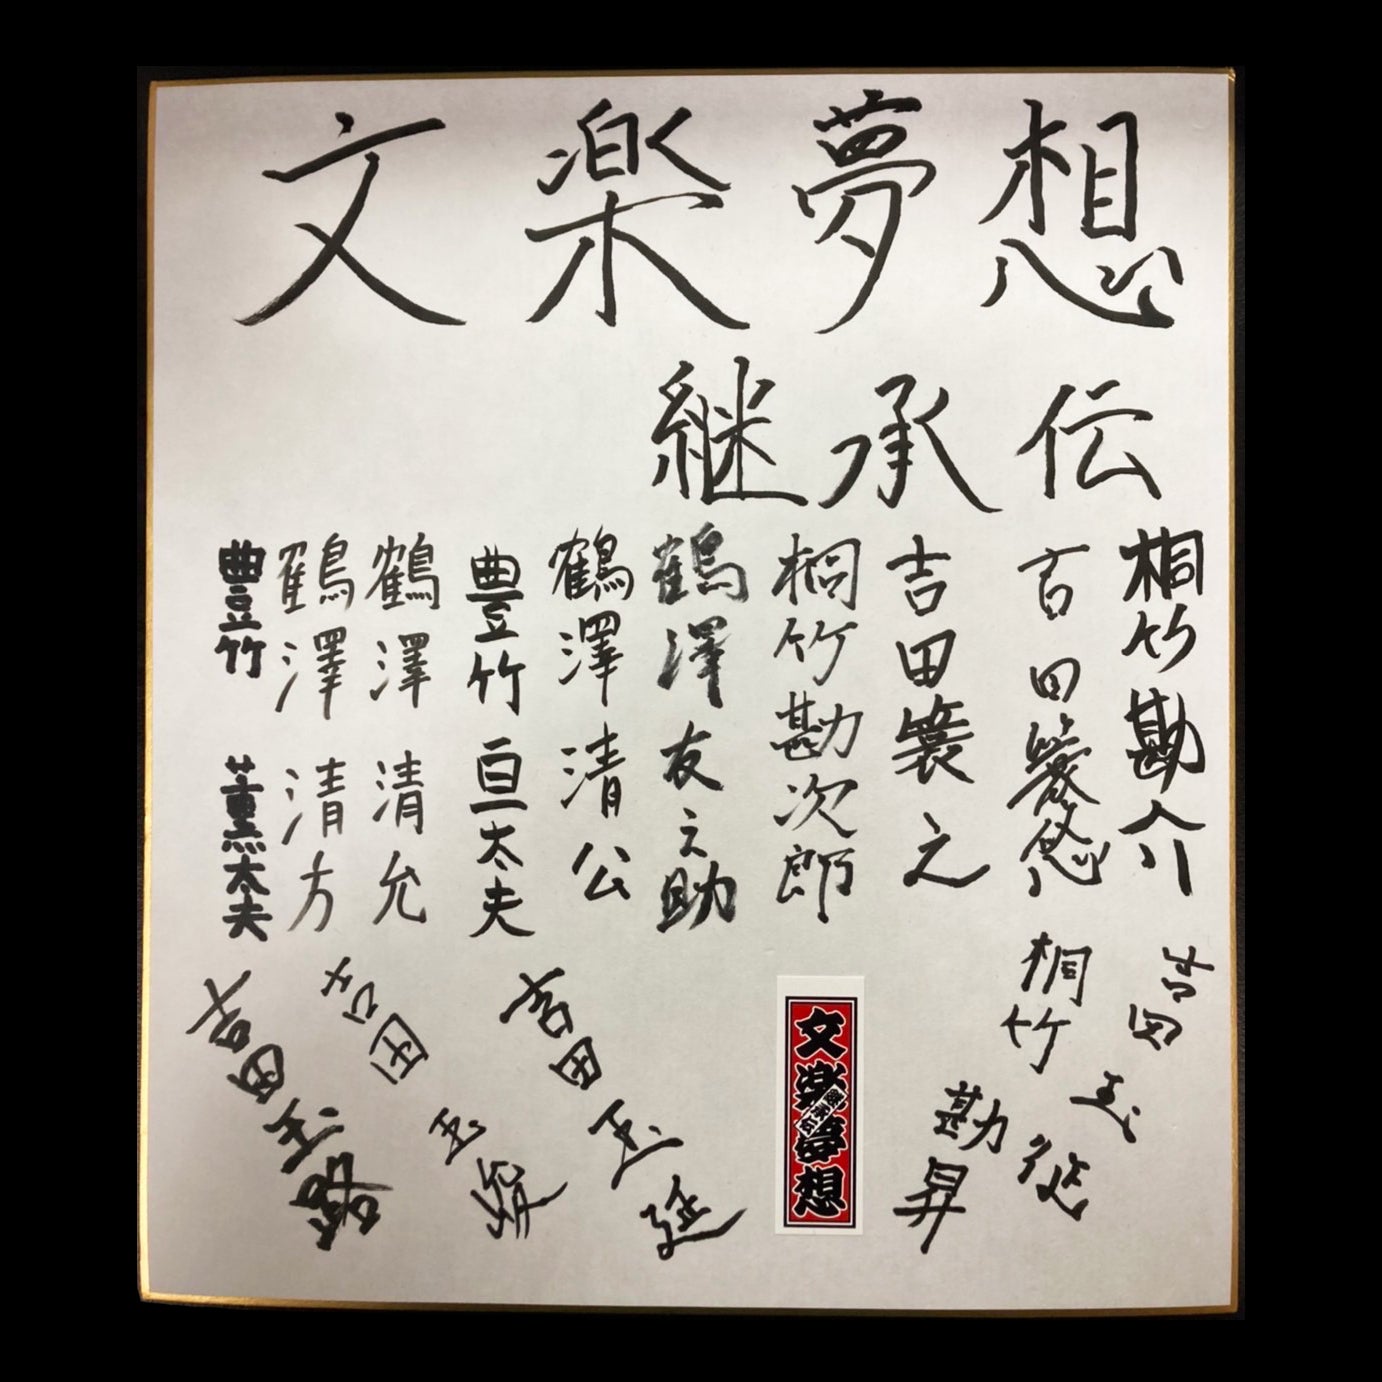 文楽夢想
継承伝
桐竹勘介
吉田簑悠
吉田簑之
桐竹勘次郎
鶴澤友之助
鶴澤清公
豊竹亘太夫
鶴澤清允
鶴澤清方
豊竹薫太夫
吉田玉征
桐竹勘昇
文楽夢想
吉田玉延
吉田玉峻
吉田玉路